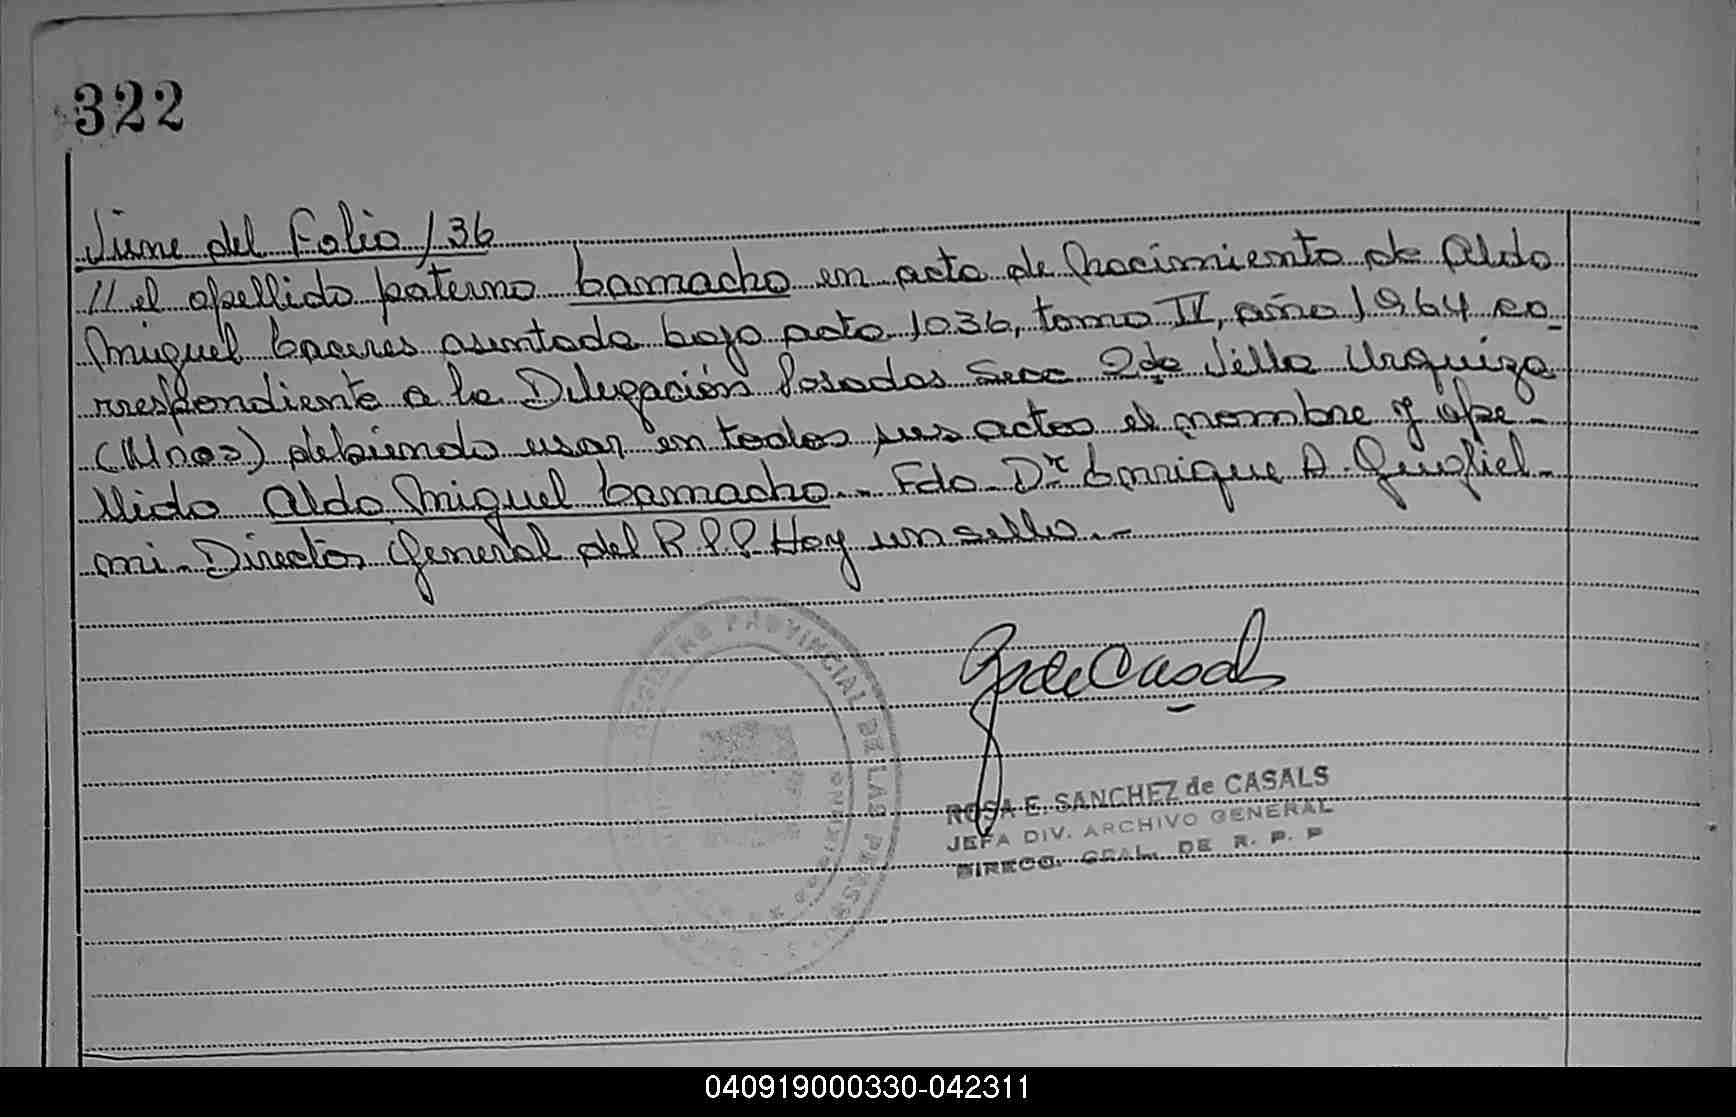 322
Viene del Folio /36
// el apellido paterno Camacho en acta de Nacimiento de Aldo
Miguel Caceres asentada bajo acta 1036, tomo IV, año 1964 co_
rrespondiente a la Delegación Posadas Secc 2da Villa Urquiza
(Mnes) debiendo usar en todos sus actos el nombre y ape_
llido Aldo Miguel Camacho_. Fdo Dr Enrique A. Gugliel_
mi_ Director General del R.P.P. Hay un sello._
REGISTRO PROVINCIAL DE LAS PERSONAS
ROSA E. SANCHEZ de CASALS
JEFA DIV. ARCHIVO GENERAL
DIRECC. GRAL. DE R. P. P
040919000330-042311